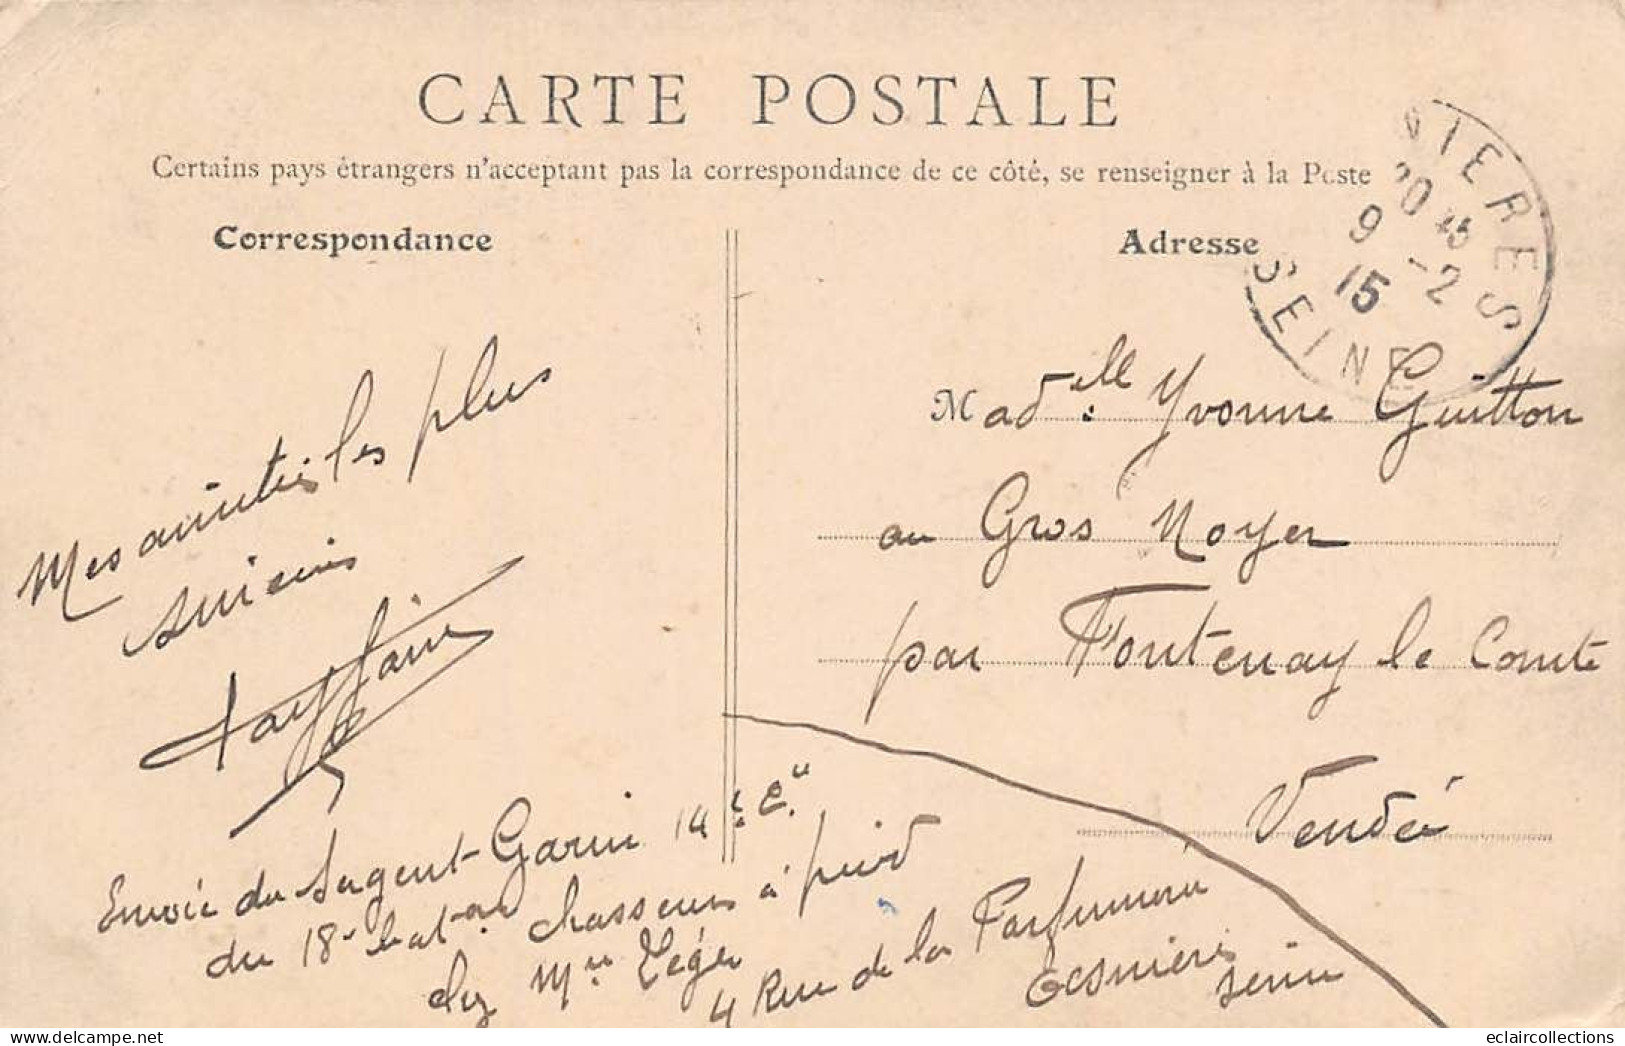 CARTE POSTALE
Certains pays étrangers n'acceptent pas la correspondance de ce côté, se renseigner à la Poste
Correspondance
Adresse
NIERES
20 45
9 -2
15
SEINE
Mes amitiés les plus
Madelle Yvonne Guitton
au Gros Noyer
par Fontenay le Comte
Vendée
Envoie du Sergent Garin 14e Cie
du 18e bat.on chasseurs à pied
chez Mr Léger
4 Rue de la Parfumerie
Asnières
Seine
eclaircollections